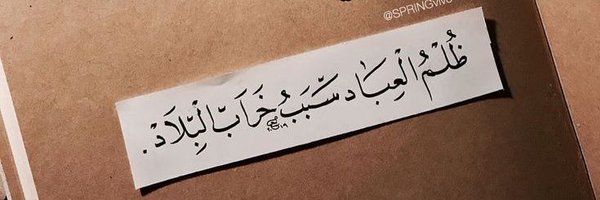 @SPRINGVIVO
ظُلْمُ الْعِبَاد سَّبَبُ خَرَابَّ الْبِّلَادْ.